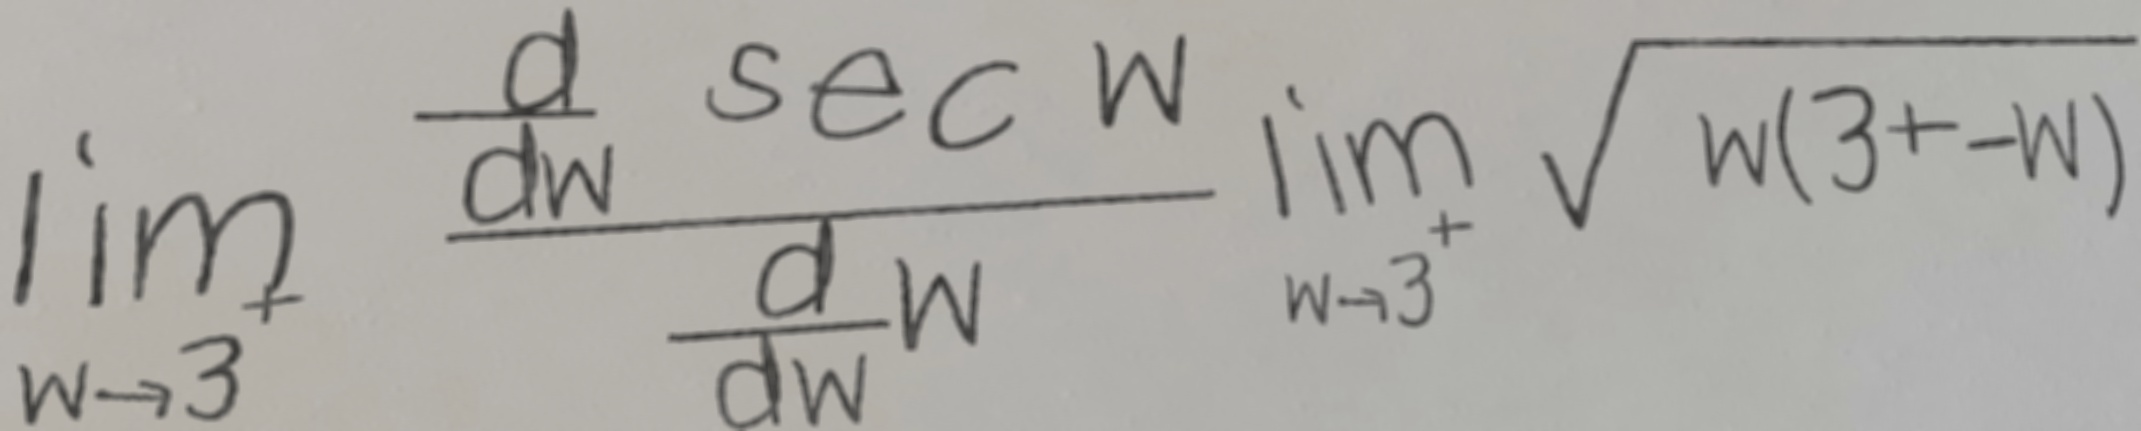 \lim_{w \to 3^+} \frac{\frac{d}{dw} \sec w}{\frac{d}{dw} w} \lim_{w \to 3^+} \sqrt{w(3^+ - w)}